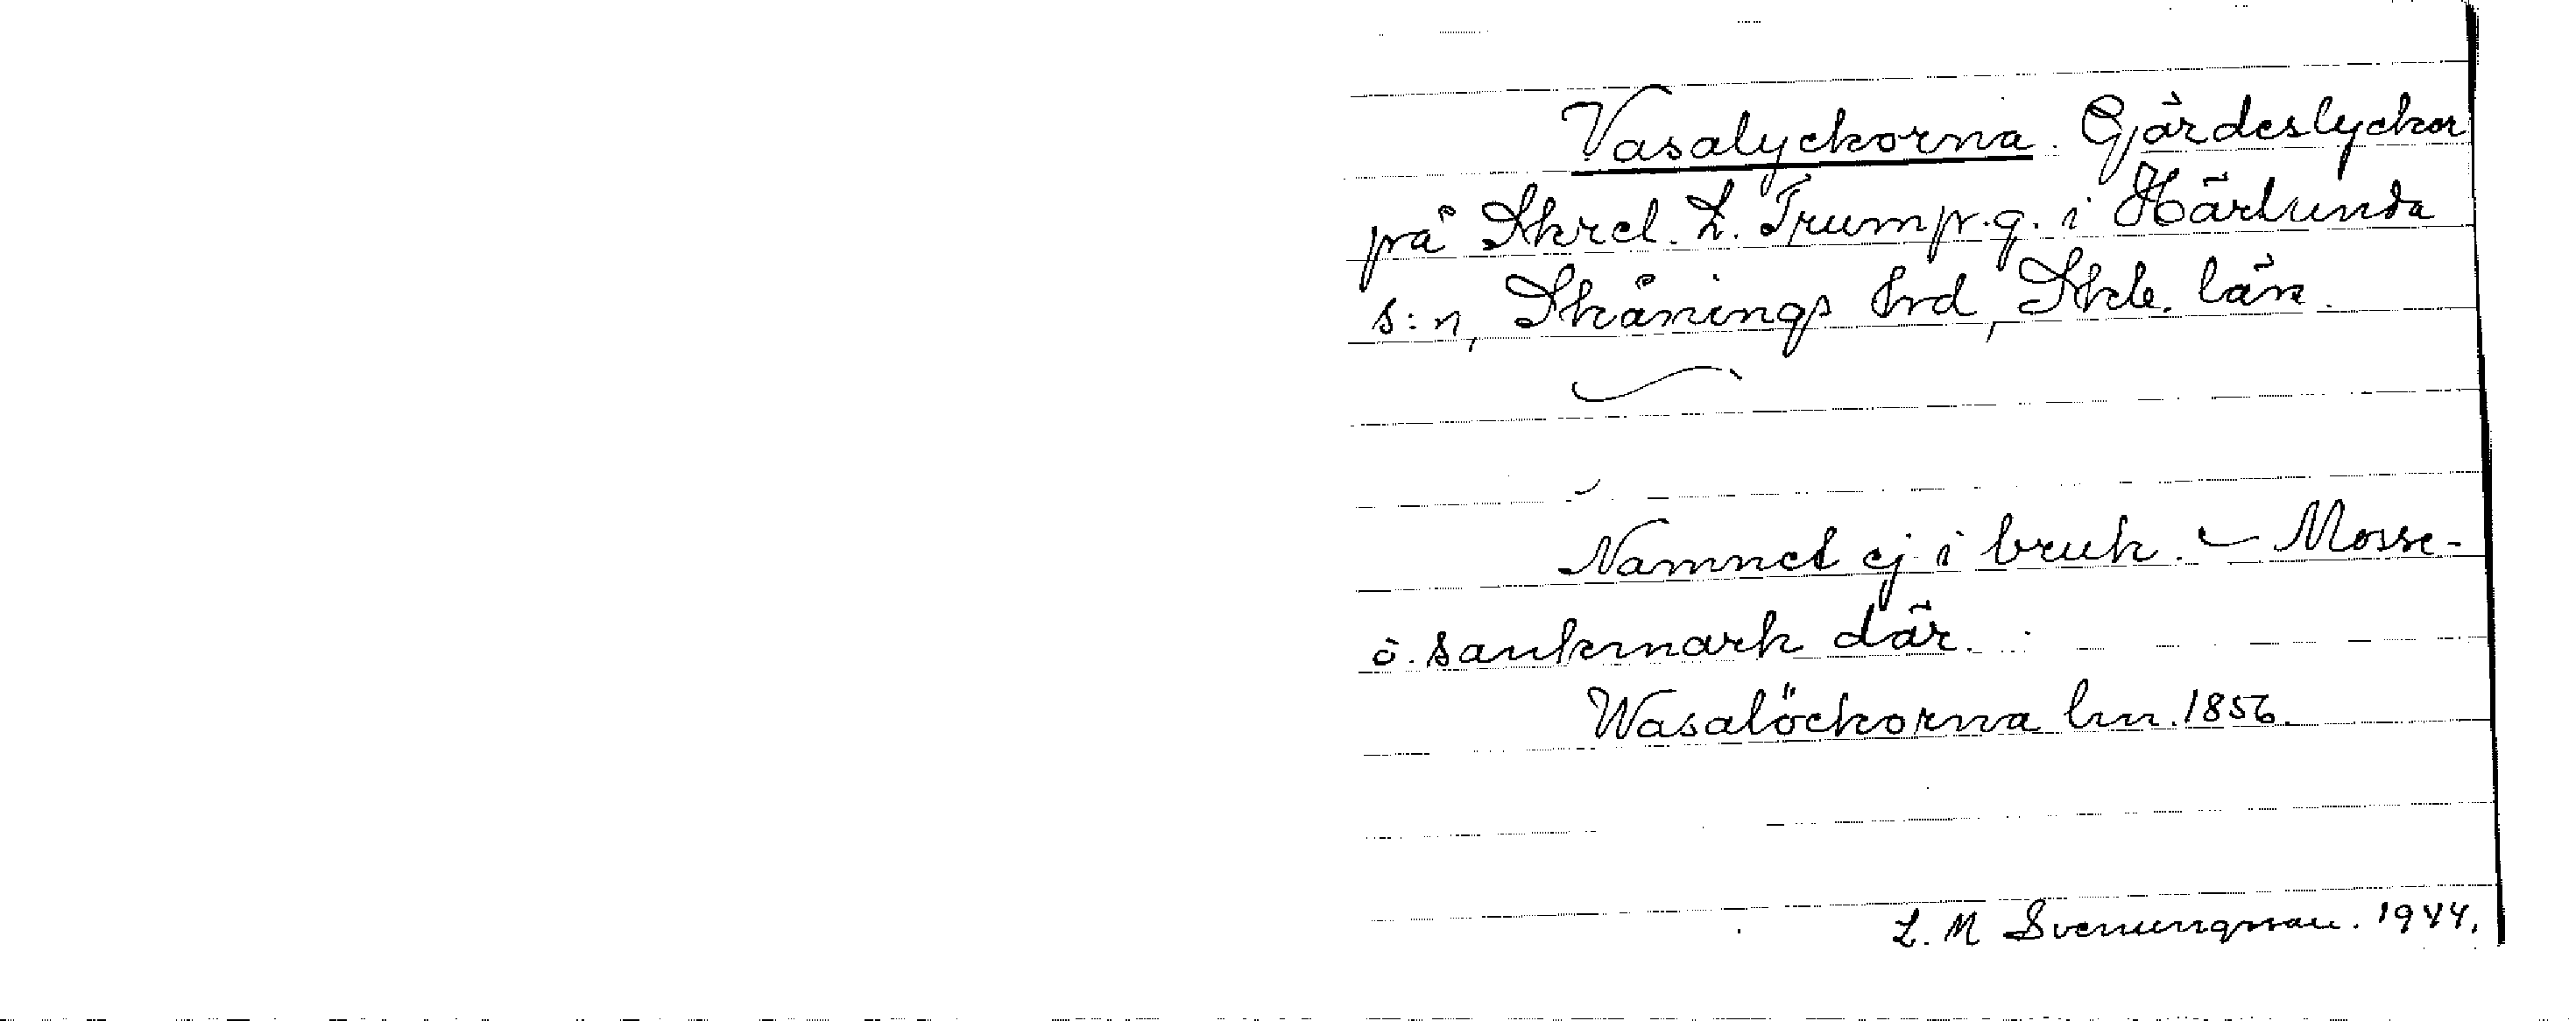 Vasalyckorna. Gjärdeslyckor
på Skrel. L. Trump.g. i Härlunda
s:n, Skånings hrd, Skb. län.
Namnet ej i bruk. – Mosse-
o. sankmark där.
Wasalöckorna lm. 1856.
L. M Svenungsson. 1944.